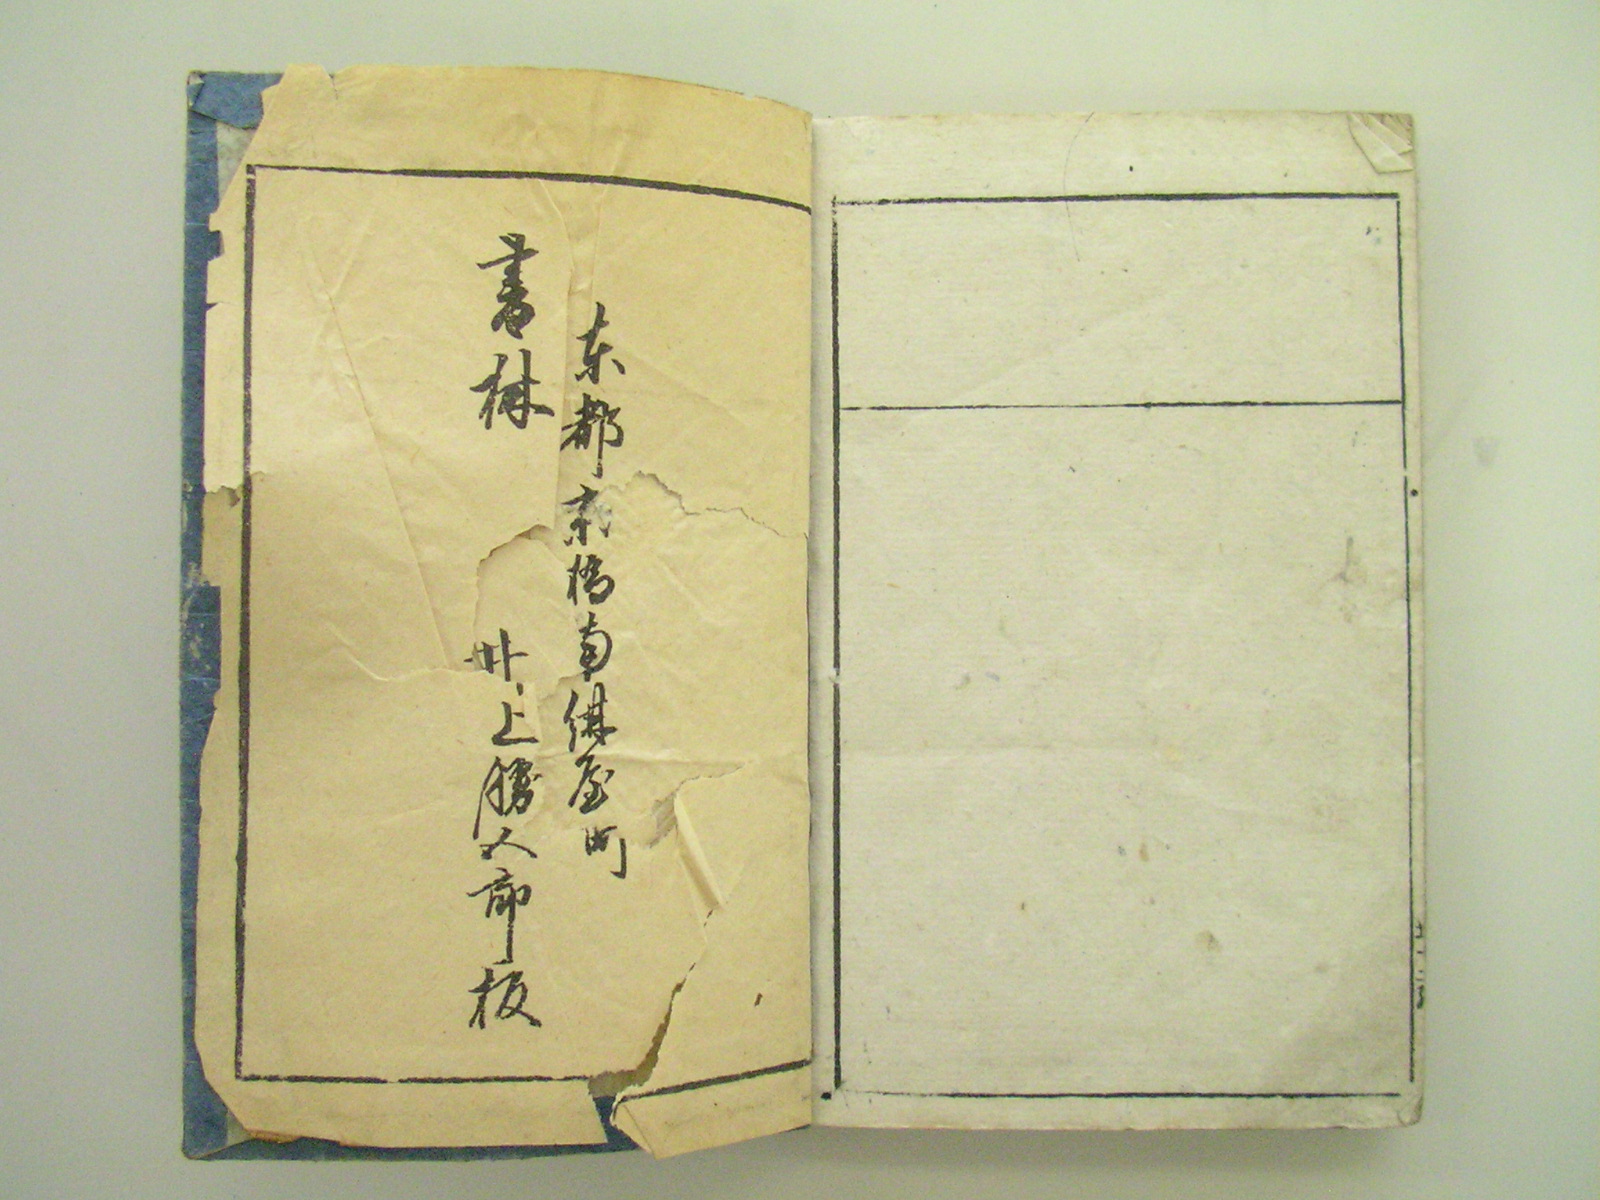 東都京橋南傳屋町
書林 井上勝五郎板